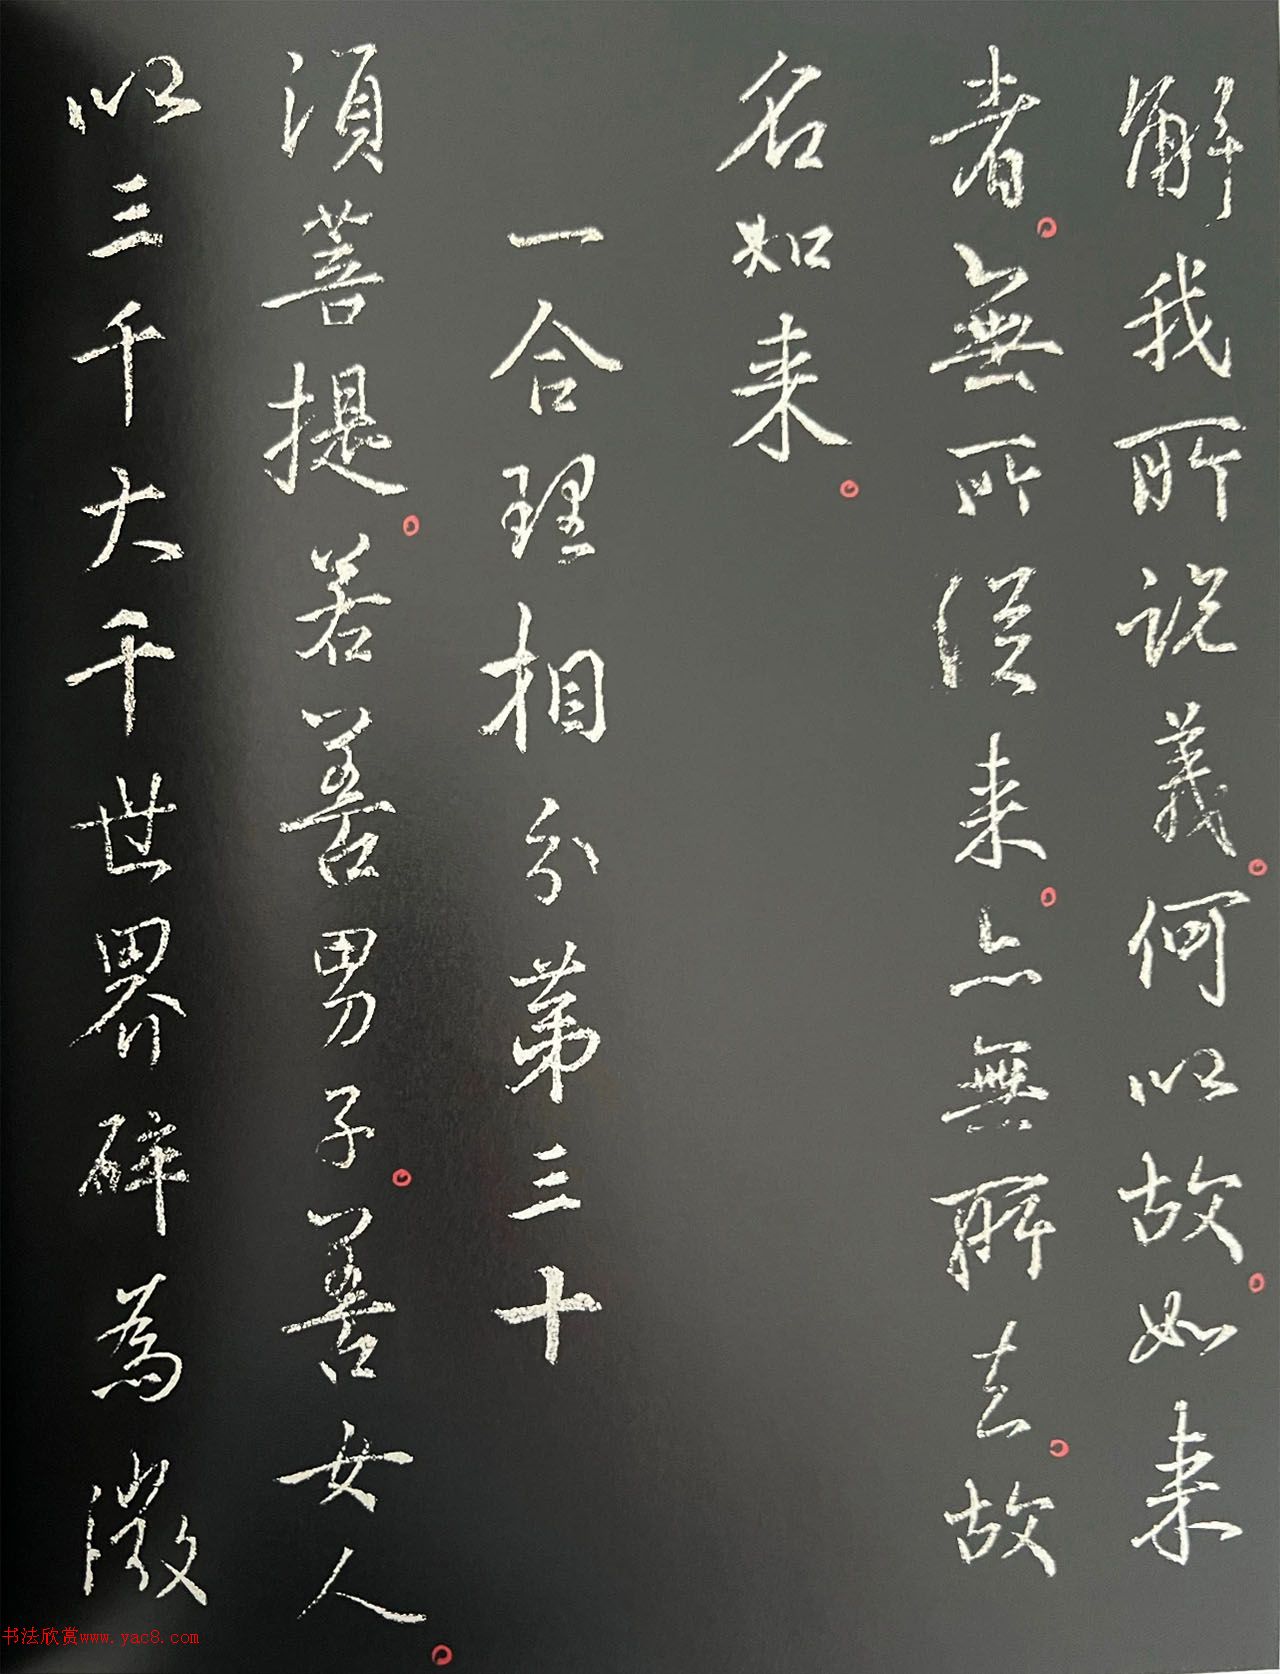 解我所说義何以故如来
者無所從来亦無所去故
名如来
一合理相分第三十
須菩提若善男子善女人
以三千大千世界碎為微
书法欣赏www.yac8.com